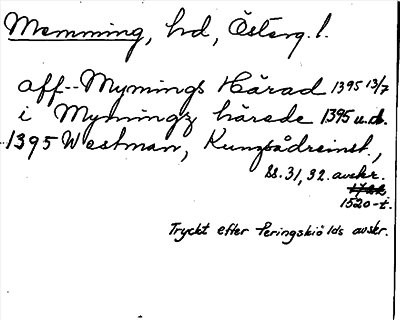 Memming, hd, Österg. l.
aff -- Mymings Härad 1395 13/7
i Mymingz härade 1395 u.d.
1395 Westman, Kungsådreinst.,
ss. 31, 32. avskr.
1520-t.
Tryckt efter Peringskiölds avskr.